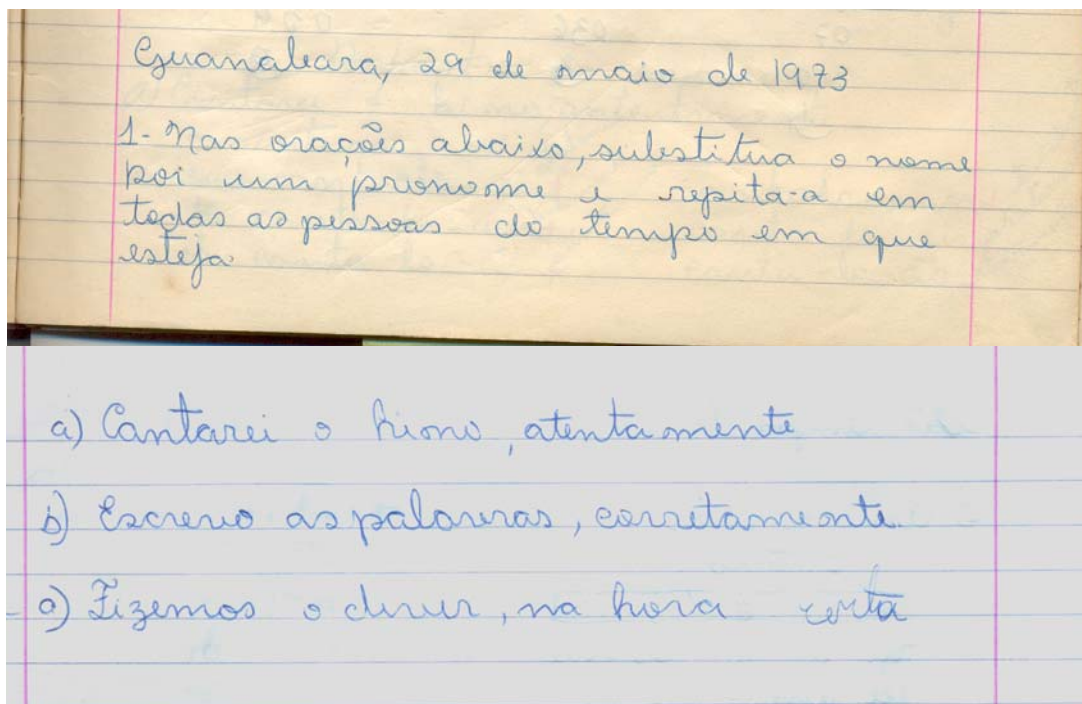 Guanabara, 29 de maio de 1973
1- Nas orações abaixo, substitua o nome
poi um pronome e repita-a em
todas as pessoas do tempo em que
esteja
a) Cantarei o hino, atentamente
b) Escrevo as palavras, corretamente.
c) Fizemos o dever, na hora certa